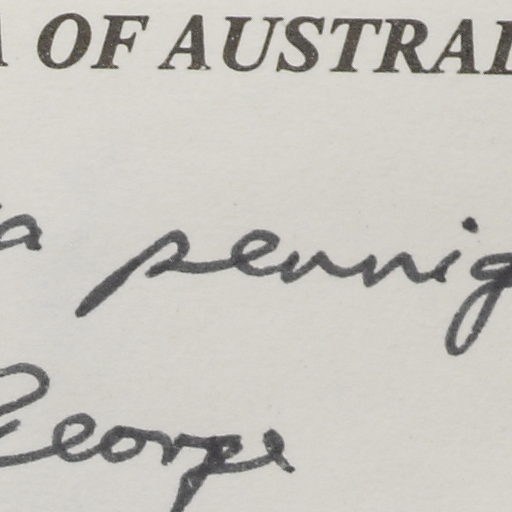 A OF AUSTRAL
a pennig
George